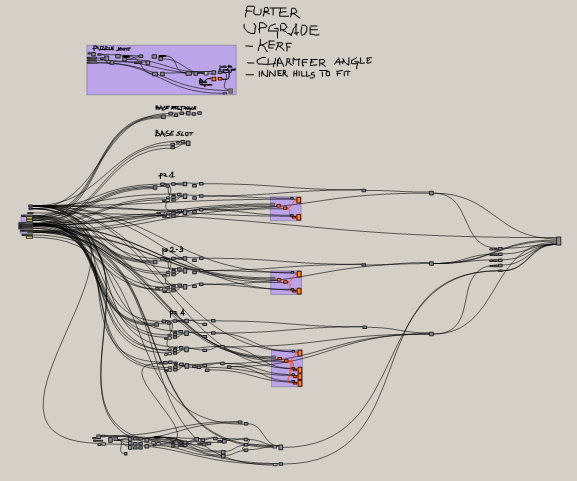 FURTER
UPGRADE
- KERF
- CHARMFER ANGLE
- INNER HILLS TO FIT
PUZZLE JOINT
BASE
BASE SLOT
pz 1
pz 2-3
pz 4